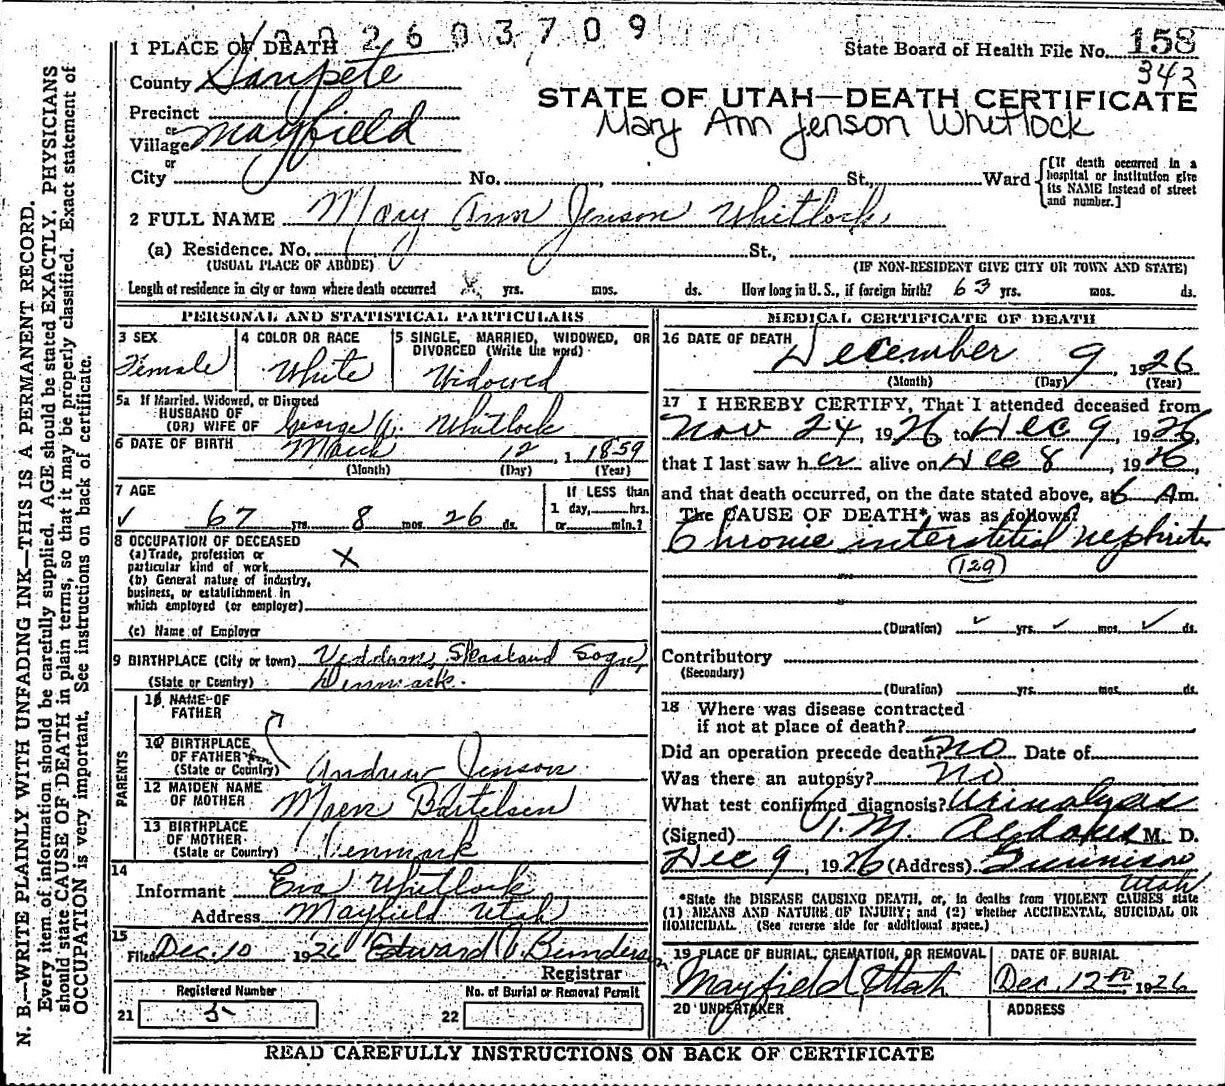 2603709
1 PLACE OF DEATH
State Board of Health File No. 158
343
County Sanpete
STATE OF UTAH—DEATH CERTIFICATE
Mary Ann Jenson Whitlock
Precinct
or
Village Mayfield
or
City No. St. Ward
[If death occurred in a
hospital or institution give
its NAME instead of street
and number.]
2 FULL NAME Mary Ann Jenson Whitlock
(a) Residence. No. St.,
(USUAL PLACE OF ABODE) (IF NON-RESIDENT GIVE CITY OR TOWN AND STATE)
Length of residence in city or town where death occurred yrs. mos. ds. How long in U.S., if foreign birth? 63 yrs. mos. ds.
PERSONAL AND STATISTICAL PARTICULARS
3 SEX
Female
4 COLOR OR RACE
White
5 SINGLE, MARRIED, WIDOWED, OR
DIVORCED (Write the word)
Widowed
5a If Married, Widowed, or Divorced
HUSBAND OF
(OR) WIFE OF George A. Whitlock
6 DATE OF BIRTH March 12 1 1859
(Month) (Day) (Year)
7 AGE
67 yrs. 8 mos. 26 ds.
If LESS than
1 day, hrs.
or min.?
8 OCCUPATION OF DECEASED
(a) Trade, profession or
particular kind of work X
(b) General nature of industry,
business, or establishment in
which employed (or employer)
(c) Name of Employer
9 BIRTHPLACE (City or town) Sogn,
(State or Country) Denmark.
PARENTS
10 NAME OF
FATHER
BIRTHPLACE
OF FATHER
(State or Country) Andrew Jenson
12 MAIDEN NAME
OF MOTHER Maren Bartelsen
13 BIRTHPLACE
OF MOTHER
(State or Country) Denmark
14
Informant Eva Whitlock
Address Mayfield Utah
15
Filed Dec. 10 1926 Edward Bunderson
Registrar
Registered Number
21 5
No. of Burial or Removal Permit
22
MEDICAL CERTIFICATE OF DEATH
16 DATE OF DEATH December 9, 1926
(Month) (Day) (Year)
17 I HEREBY CERTIFY, That I attended deceased from
Nov 24, 1926 to Dec 9, 1926,
that I last saw her alive on Dec 8, 1926,
and that death occurred, on the date stated above, at 6 Am.
The CAUSE OF DEATH* was as follows:
Chronic interstitial nephritis
(129)
(Duration) yrs. mos. ds.
Contributory
(Secondary)
(Duration) yrs. mos. ds.
18 Where was disease contracted
if not at place of death?
Did an operation precede death? no Date of
Was there an autopsy? no
What test confirmed diagnosis? Urinalysis
(Signed) M. D.
Dec 9, 1926 (Address) Gunnison
Utah
*State the DISEASE CAUSING DEATH, or, in deaths from VIOLENT CAUSES state
(1) MEANS AND NATURE OF INJURY; and (2) whether ACCIDENTAL, SUICIDAL OR
HOMICIDAL. (See reverse side for additional space.)
19 PLACE OF BURIAL, CREMATION, OR REMOVAL
Mayfield Utah
DATE OF BURIAL
Dec. 12th 1926
20 UNDERTAKER
ADDRESS
READ CAREFULLY INSTRUCTIONS ON BACK OF CERTIFICATE
N. B.—WRITE PLAINLY WITH UNFADING INK—THIS IS A PERMANENT RECORD.
Every item of information should be carefully supplied. AGE should be stated EXACTLY. PHYSICIANS
should state CAUSE OF DEATH in plain terms, so that it may be properly classified. Exact statement of
OCCUPATION is very important. See instructions on back of certificate.